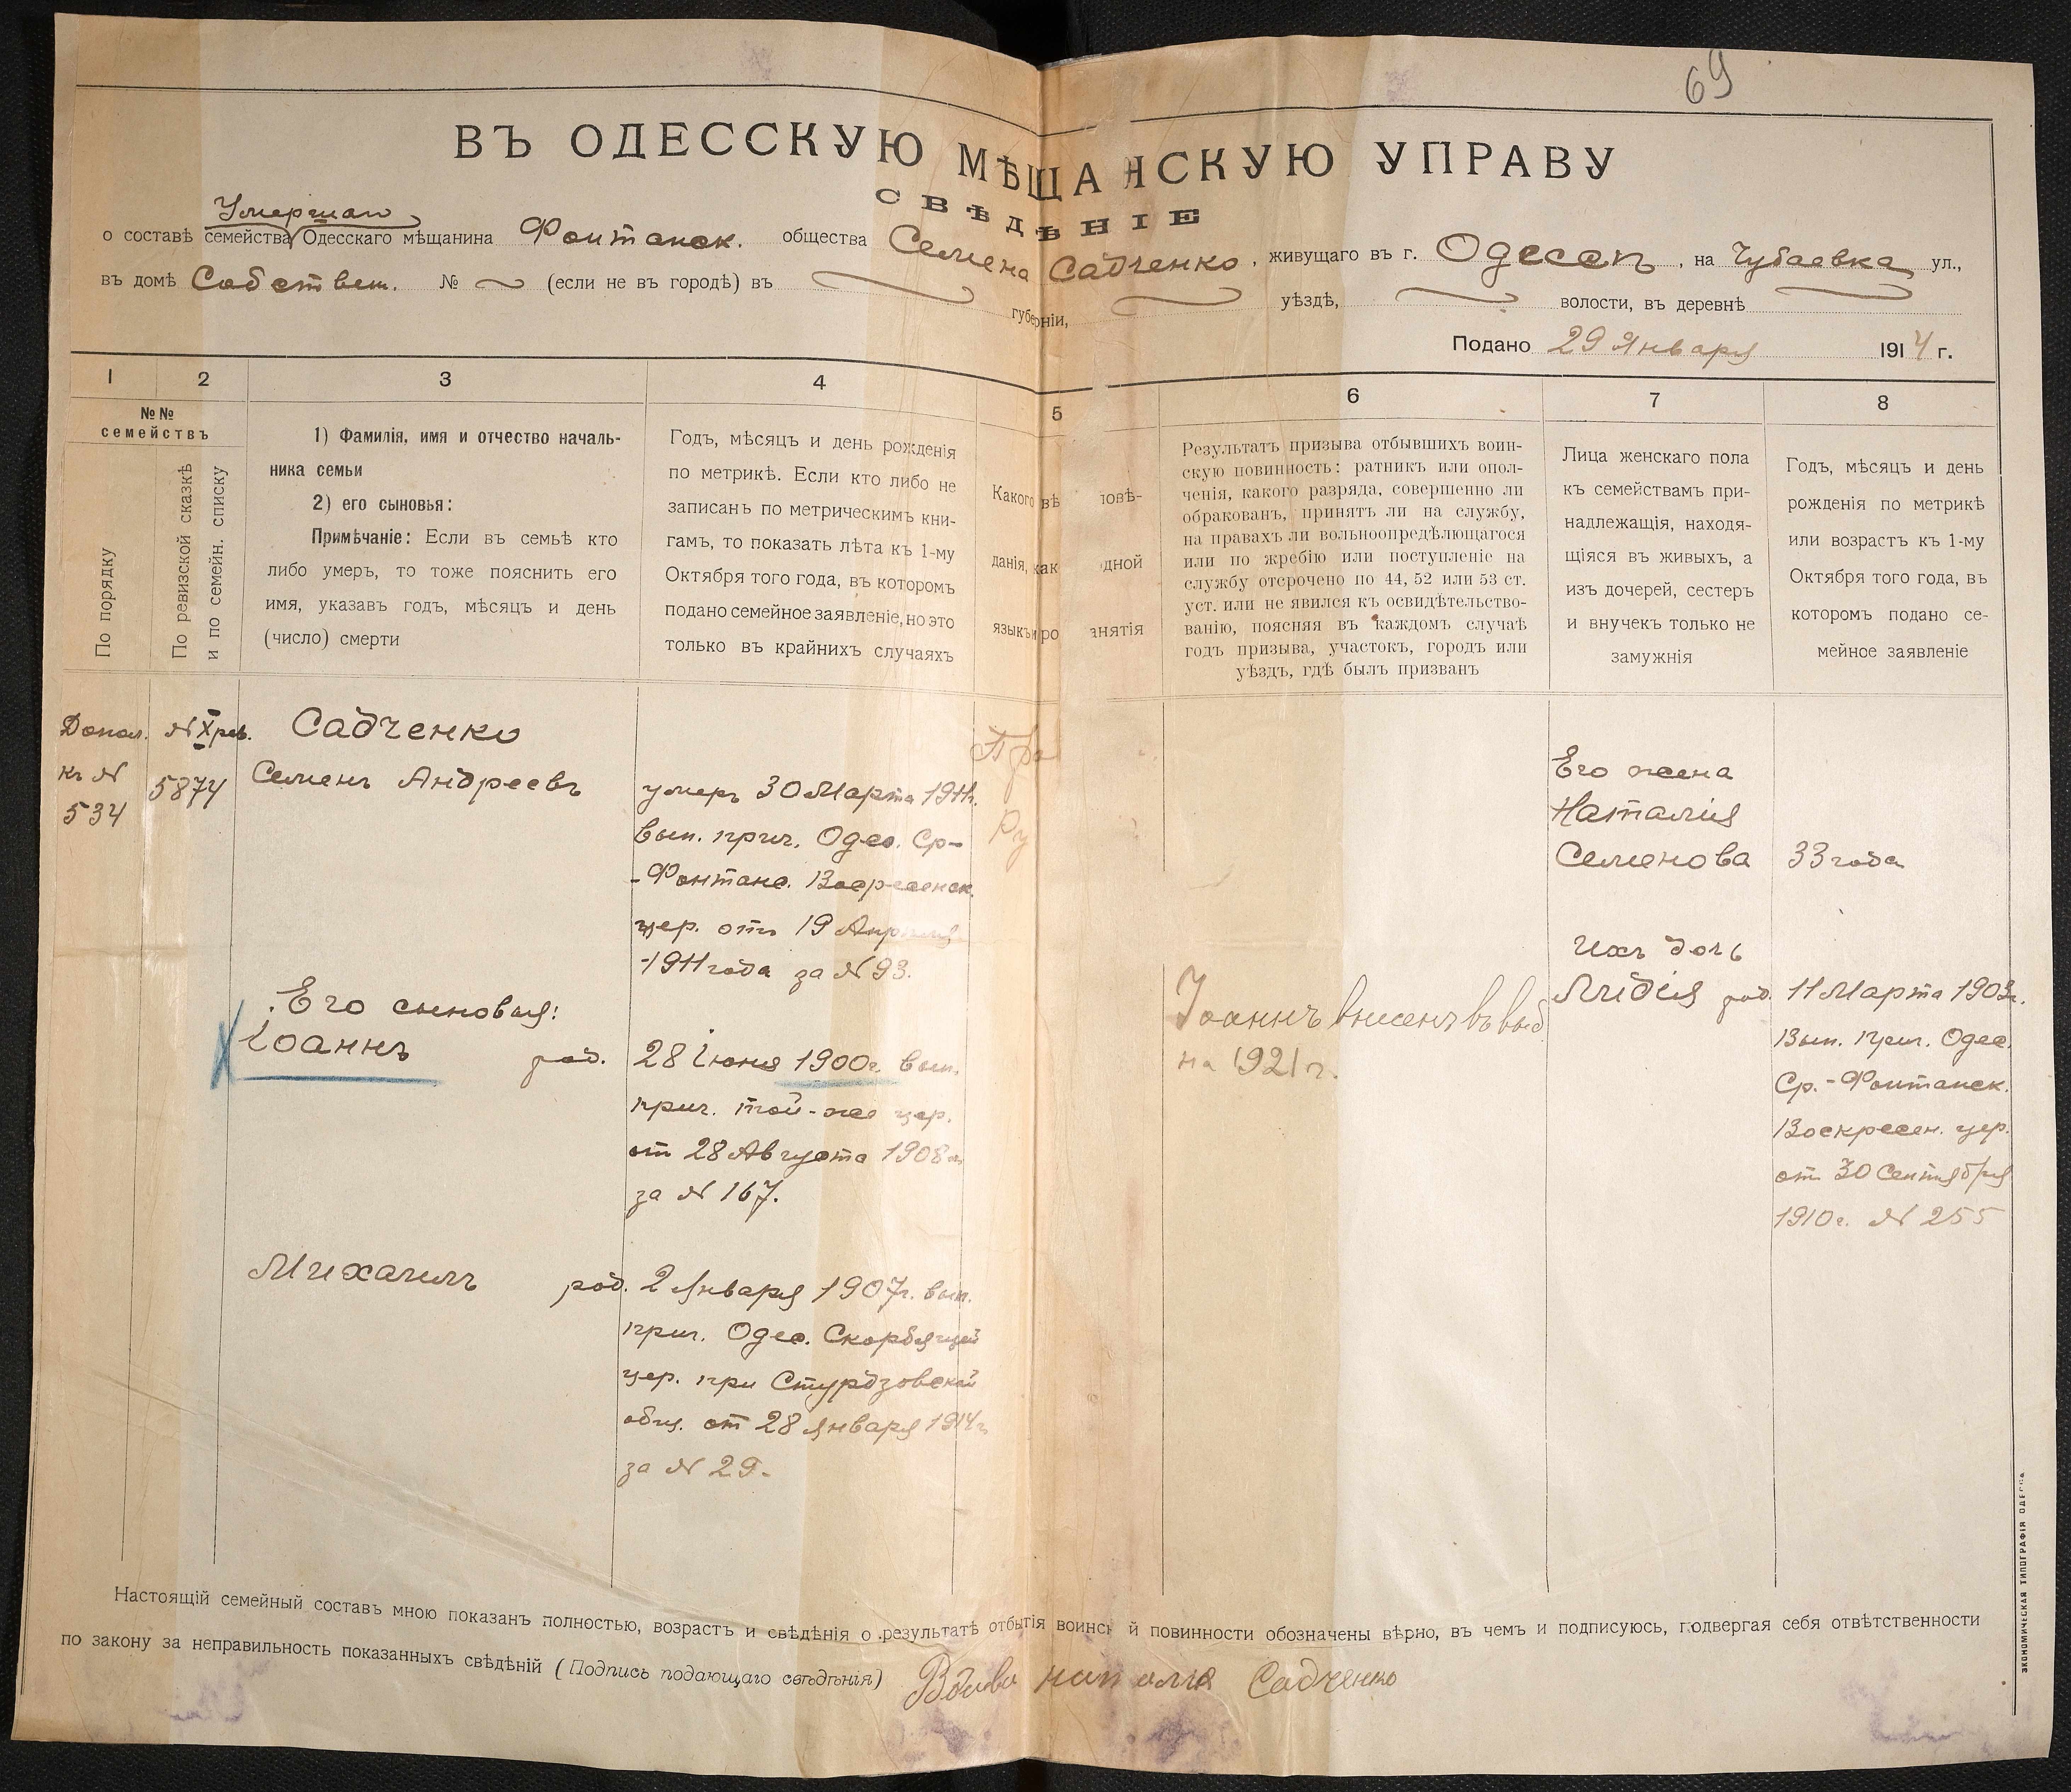 69
ВЪ ОДЕССКУЮ МѢЩАНСКУЮ УПРАВУ
СВѢДѢНІЕ
Умершаго
о составѣ семейства Одесскаго мѣщанина Фонтанск. общества Семена Садченко, живущаго въ г. Одессѣ, на Чубаевка ул.,
въ домѣ Собствен. № (если не въ городѣ) въ губерніи, уѣздѣ, волости, въ деревнѣ
Подано 29 Января 1914 г.
1
2
3
4
5
6
7
8
№№
семействъ
По порядку
По ревизской сказкѣ
и по семейн. списку
1) Фамилія, имя и отчество началь-
ника семьи
2) его сыновья:
Примѣчаніе: Если въ семьѣ кто
либо умеръ, то тоже пояснить его
имя, указавъ годъ, мѣсяцъ и день
(число) смерти
Годъ, мѣсяцъ и день рожденія
по метрикѣ. Если кто либо не
записанъ по метрическимъ кни-
гамъ, то показать лѣта къ 1-му
Октября того года, въ которомъ
подано семейное заявленіе, но это
только въ крайнихъ случаяхъ
Какого вѣ повѣ-
данія, как дной
языкъ и ро анятія
Результатъ призыва отбывшихъ воин-
скую повинность: ратникъ или опол-
ченія, какого разряда, совершенно ли
обракованъ, принятъ ли на службу,
на правахъ ли вольноопредѣляющагося
или по жребію или поступленіе на
службу отсрочено по 44, 52 или 53 ст.
уст. или не явился къ освидѣтельство-
ванію, поясняя въ каждомъ случаѣ
годъ призыва, участокъ, городъ или
уѣздъ, гдѣ былъ призванъ
Лица женскаго пола
къ семействамъ при-
надлежащія, находя-
щіяся въ живыхъ, а
изъ дочерей, сестеръ
и внучекъ только не
замужнія
Годъ, мѣсяцъ и день
рожденія по метрикѣ
или возрастъ къ 1-му
Октября того года, въ
которомъ подано се-
мейное заявленіе
Допол.
къ №
534
№ X рев.
5874
Садченко
Семенъ Андреевъ
умеръ 30 Марта 1911г.
вып. прич. Одес. Ср-
-Фонтанс. Воскресенск.
цер. отъ 19 Апрѣля
1911 года за № 93.
Пра
Ру
Его жена
Наталія
Семенова
33 года
Ихъ дочь
Лидія род.
11 Марта 1903г.
Вып. прич. Одес.
Ср.-Фонтанск.
Воскресен. цер.
от 30 Сентября
1910г. № 255
Его сыновья:
Іоаннъ род.
28 Іюня 1900г. вып.
прич. той-же цер.
от 28 Августа 1908г.
за № 167.
Іоаннъ внесенъ въ выб
на 1921 г.
Михаилъ род.
2 Января 1907г. вып.
прич. Одес. Скорбящей
цер. при Стурдзовской
общ. от 28 Января 1914г
за № 29.
Настоящій семейный составъ мною показанъ полностью, возрастъ и свѣдѣнія о результатѣ отбытія воинск й повинности обозначены вѣрно, въ чемъ и подписуюсь, подвергая себя отвѣтственности
по закону за неправильность показанныхъ свѣдѣній (Подпись подающаго свѣдѣнія) Вдова Наталия Садченко
ЭКОНОМИЧЕСКАЯ ТИПОГРАФІЯ ОДЕССА